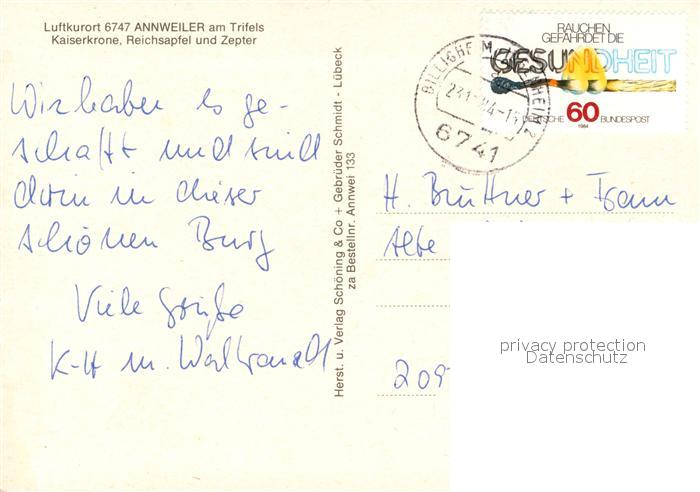 Luftkurort 6747 ANNWEILER am Trifels
Kaiserkrone, Reichsapfel und Zepter
Wir haben es ge-
schafft und sind
drin in dieser
schönen Burg
Viele Grüße
K-H u. Waltraudt
Herst. u. Verlag Schöning & Co + Gebrüder Schmidt - Lübeck
za Bestellnr. Annwei 133
RAUCHEN
GEFÄHRDET DIE
GESUNDHEIT
DEUTSCHE 60 BUNDESPOST
1984
BILLIGHEIM
6741
H. Brüttner + Frau
Alte
209
privacy protection
Datenschutz